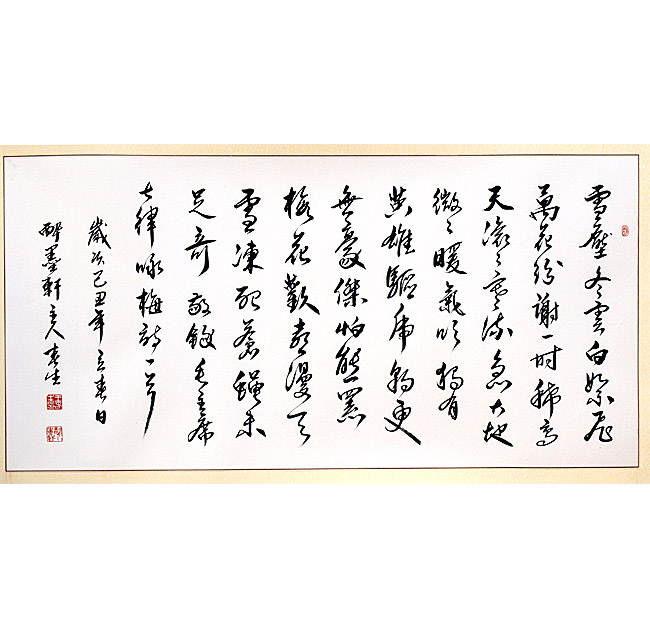 雪壓冬雲白絮飛
萬花紛謝一时稀高
天滚〻寒流急大地
微〻暖氣吹獨有
英雄驅虎豹更
無豪傑怕熊羆
梅花歡喜漫天
雪凍死蒼蠅未
足奇 敬錄毛主席
七律咏梅詩一首
歲次己丑年立春日
醉墨軒主人春生